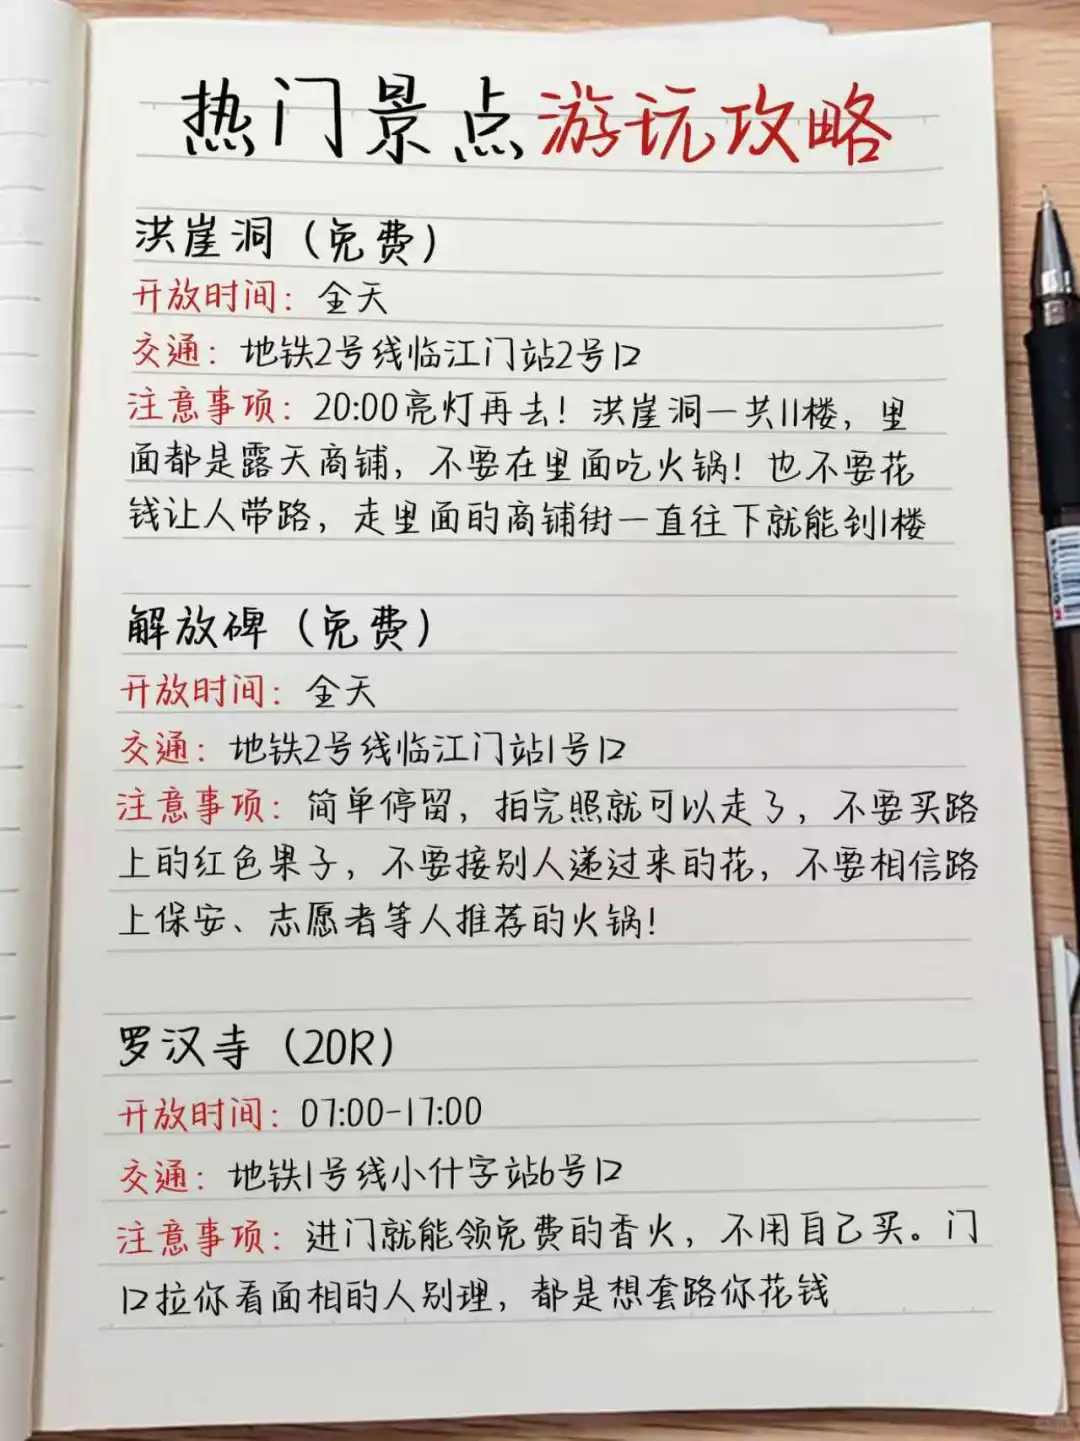 热门景点游玩攻略
洪崖洞（免费）
开放时间：全天
交通：地铁2号线临江门站2号口
注意事项：20:00亮灯再去！洪崖洞一共11楼，里
面都是露天商铺，不要在里面吃火锅！也不要花
钱让人带路，走里面的商铺街一直往下就能到1楼
解放碑（免费）
开放时间：全天
交通：地铁2号线临江门站1号口
注意事项：简单停留，拍完照就可以走了，不要买路
上的红色果子，不要接别人递过来的花，不要相信路
上保安、志愿者等人推荐的火锅！
罗汉寺（20R）
开放时间：07:00-17:00
交通：地铁1号线小什字站6号口
注意事项：进门就能领免费的香火，不用自己买。门
口拉你看面相的人别理，都是想套路你花钱